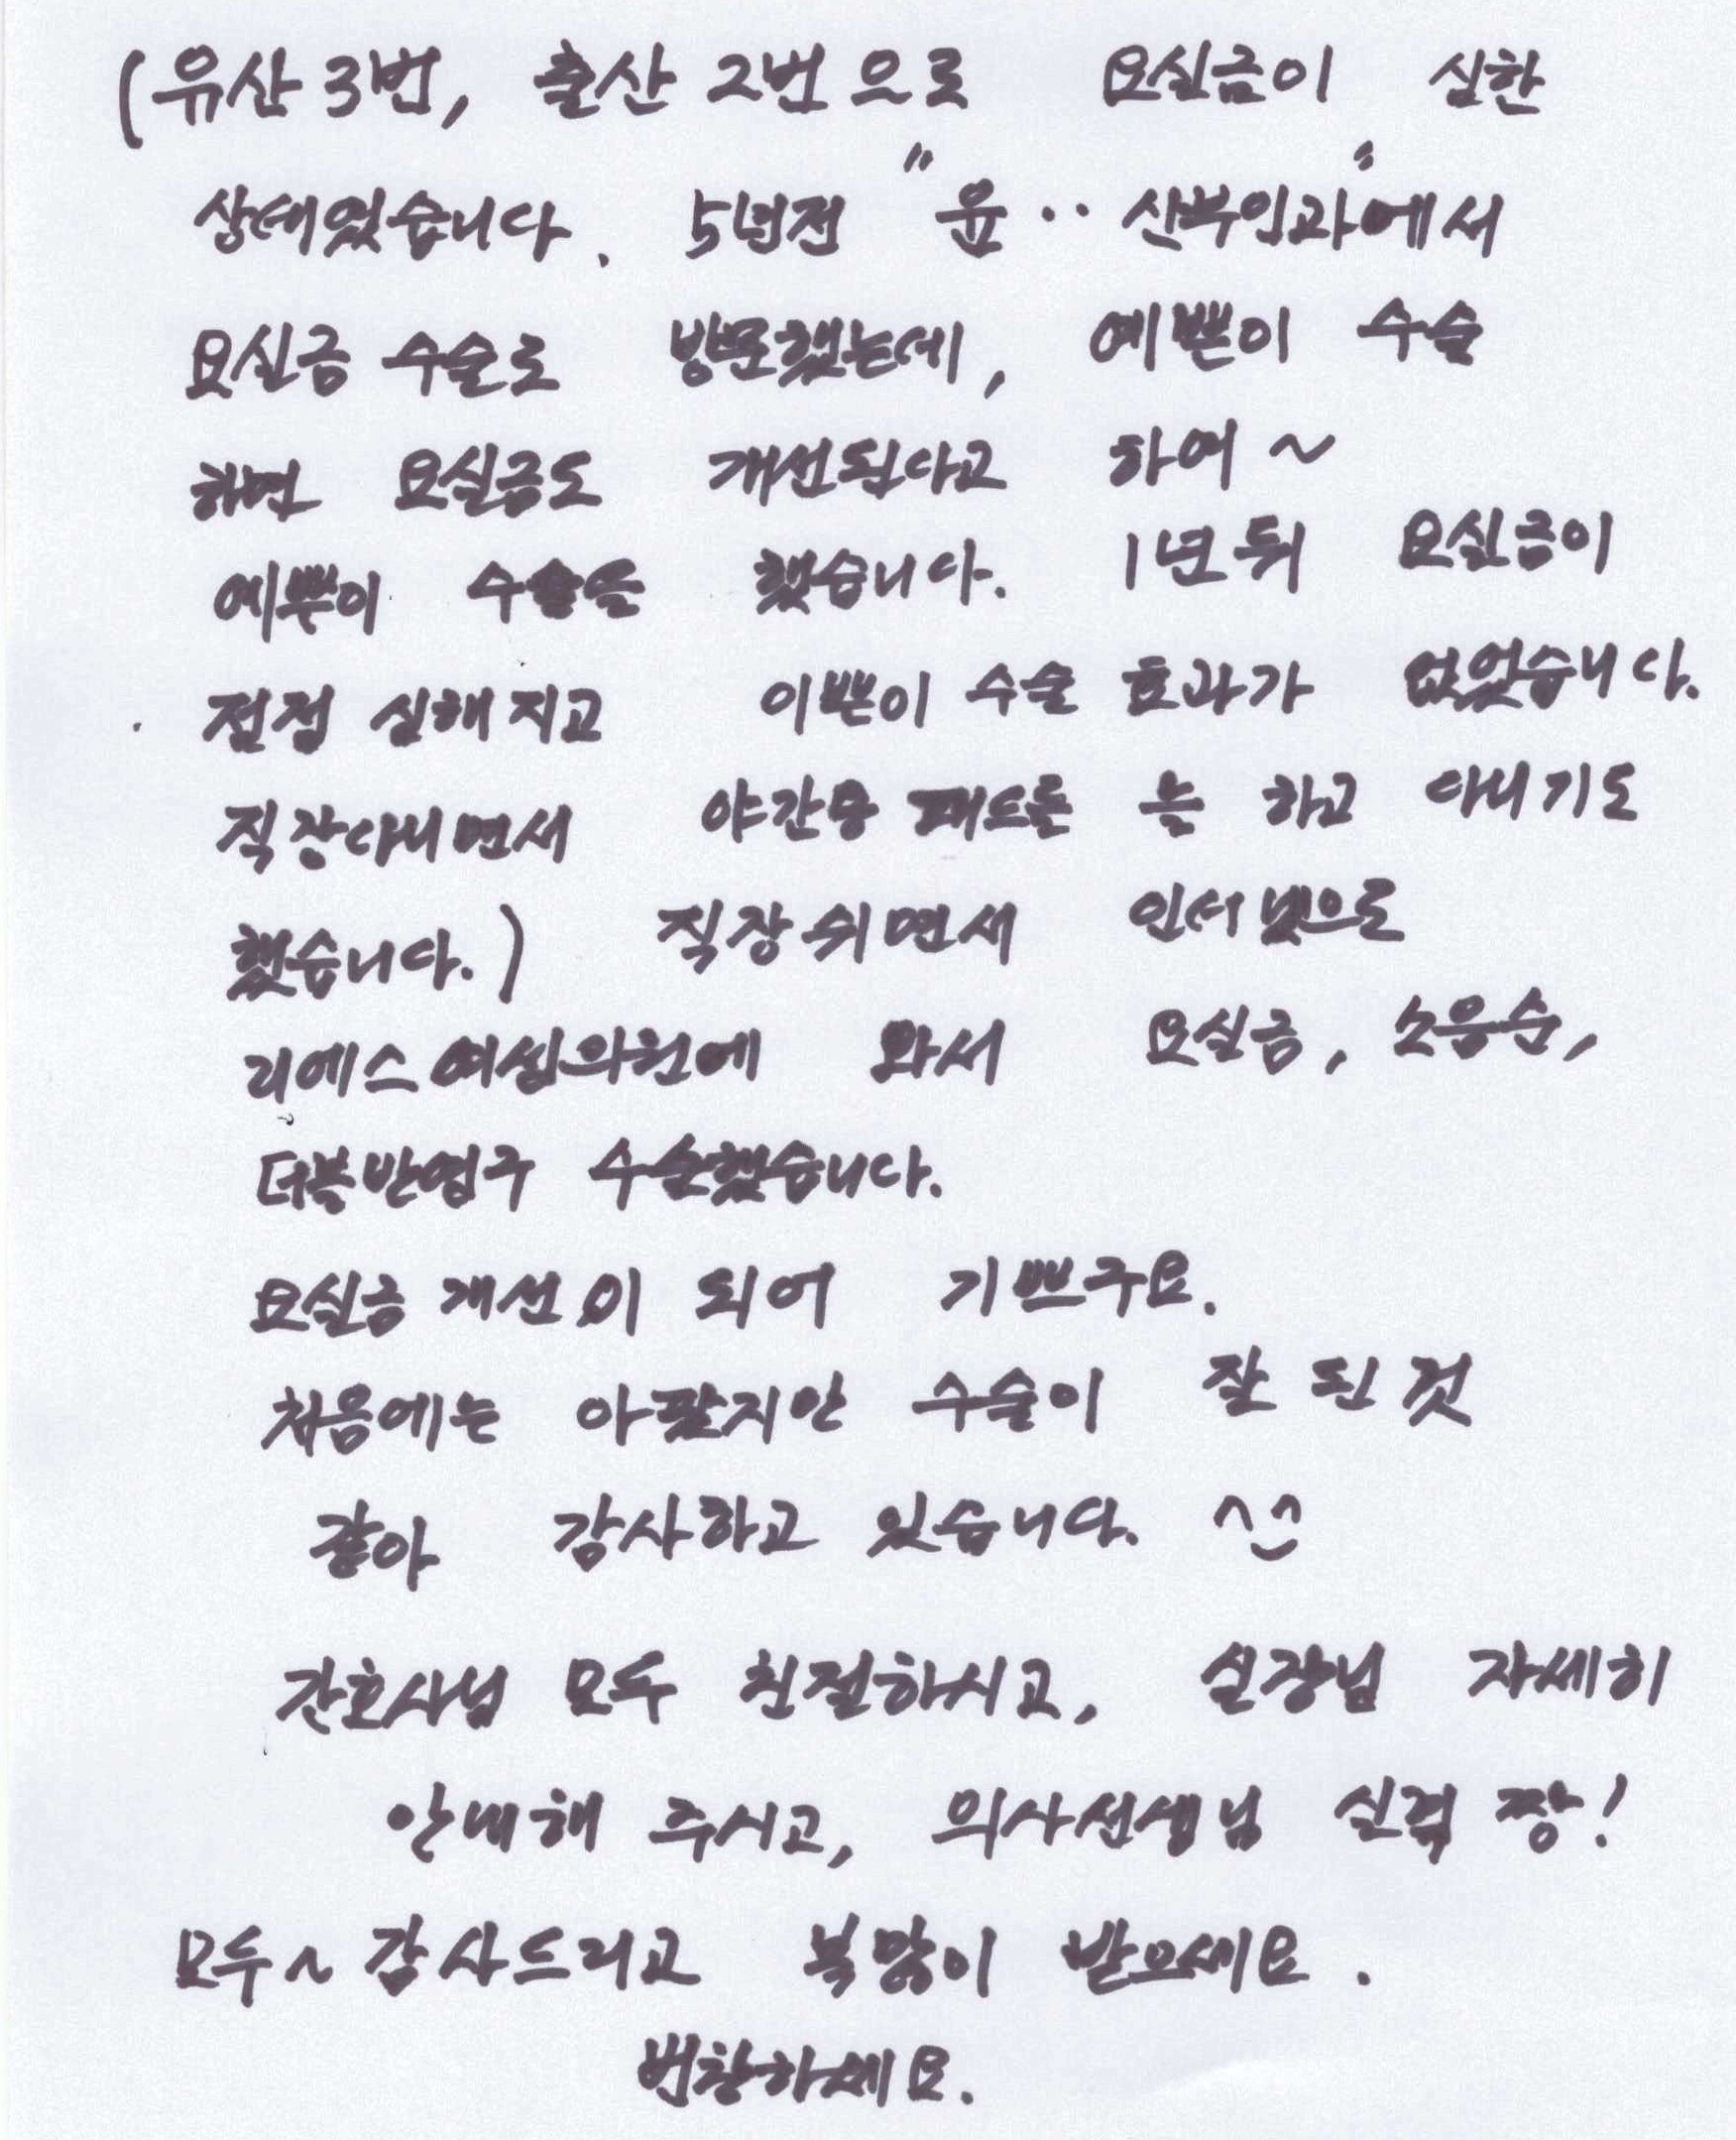 (유산3번, 출산 2번으로 요실금이 심한
상태였습니다. 5년전 "윤.. 산부인과"에서
요실금 수술로 방문했는데, 예쁜이 수술
하면 요실금도 개선된다고 하여~
예쁜이 수술을 했습니다. 1년뒤 요실금이
점점 심해지고 이쁜이 수술 효과가 없었습니다.
직장다니면서 야간용 패드를 늘 하고 다니기도
했습니다.) 직장쉬면서 인터넷으로
리에스여성의원에 와서 요실금, 소음순,
더블반영구 수술했습니다.
요실금 개선이 되어 기쁘구요.
처음에는 아팠지만 수술이 잘 된 것
같아 감사하고 있습니다. ^^
간호사님 모두 친절하시고, 실장님 자세히
안내해 주시고, 의사선생님 실력 짱!
모두~ 감사드리고 복많이 받으세요.
번창하세요.